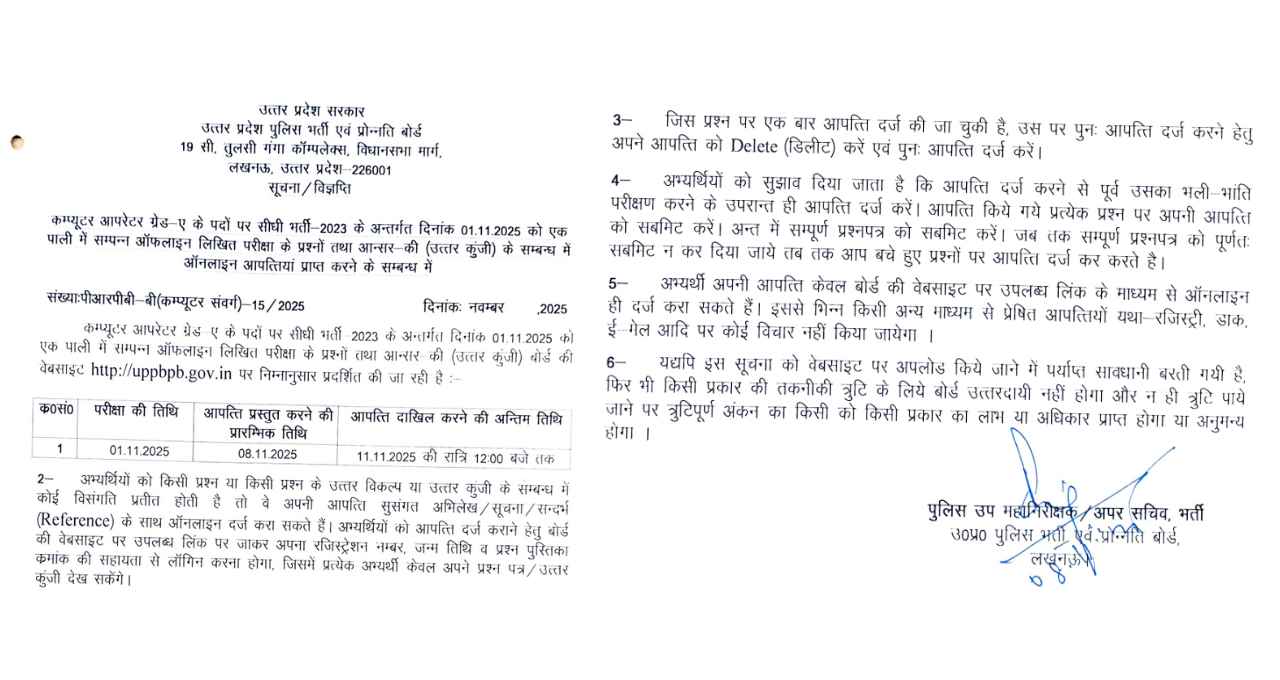 उत्तर प्रदेश सरकार
उत्तर प्रदेश पुलिस भर्ती एवं प्रोन्नति बोर्ड
19 सी, तुलसी गंगा कॉम्पलेक्स, विधानसभा मार्ग,
लखनऊ, उत्तर प्रदेश–226001
सूचना/विज्ञप्ति
कम्प्यूटर आपरेटर ग्रेड–ए के पदों पर सीधी भर्ती–2023 के अन्तर्गत दिनांक 01.11.2025 को एक
पाली में सम्पन्न ऑफलाइन लिखित परीक्षा के प्रश्नों तथा आन्सर–की (उत्तर कुंजी) के सम्बन्ध में
ऑनलाइन आपत्तियां प्राप्त करने के सम्बन्ध में
संख्याःपीआरपीबी–बी(कम्प्यूटर संवर्ग)–15/2025 दिनांकः नवम्बर ,2025
कम्प्यूटर आपरेटर ग्रेड–ए के पदों पर सीधी भर्ती–2023 के अन्तर्गत दिनांक 01.11.2025 को
एक पाली में सम्पन्न ऑफलाइन लिखित परीक्षा के प्रश्नों तथा आन्सर–की (उत्तर कुंजी) बोर्ड की
वेबसाइट http://uppbpb.gov.in पर निम्नानुसार प्रदर्शित की जा रही है :–
क०सं० परीक्षा की तिथि आपत्ति प्रस्तुत करने की आपत्ति दाखिल करने की अन्तिम तिथि
प्रारम्भिक तिथि
1 01.11.2025 08.11.2025 11.11.2025 की रात्रि 12:00 बजे तक
2– अभ्यर्थियों को किसी प्रश्न या किसी प्रश्न के उत्तर विकल्प या उत्तर कुंजी के सम्बन्ध में
कोई विसंगति प्रतीत होती है तो वे अपनी आपत्ति सुसंगत अभिलेख/सूचना/सन्दर्भ
(Reference) के साथ ऑनलाइन दर्ज करा सकते हैं। अभ्यर्थियों को आपत्ति दर्ज कराने हेतु बोर्ड
की वेबसाइट पर उपलब्ध लिंक पर जाकर अपना रजिस्ट्रेशन नम्बर, जन्म तिथि व प्रश्न पुस्तिका
क्रमांक की सहायता से लॉगिन करना होगा, जिसमें प्रत्येक अभ्यर्थी केवल अपने प्रश्न पत्र/उत्तर
कुंजी देख सकेंगे।
3– जिस प्रश्न पर एक बार आपत्ति दर्ज की जा चुकी है, उस पर पुनः आपत्ति दर्ज करने हेतु
अपने आपत्ति को Delete (डिलीट) करें एवं पुनः आपत्ति दर्ज करें।
4– अभ्यर्थियों को सुझाव दिया जाता है कि आपत्ति दर्ज करने से पूर्व उसका भली–भांति
परीक्षण करने के उपरान्त ही आपत्ति दर्ज करें। आपत्ति किये गये प्रत्येक प्रश्न पर अपनी आपत्ति
को सबमिट करें। अन्त में सम्पूर्ण प्रश्नपत्र को सबमिट करें। जब तक सम्पूर्ण प्रश्नपत्र को पूर्णतः
सबमिट न कर दिया जाये तब तक आप बचे हुए प्रश्नों पर आपत्ति दर्ज कर करते है।
5– अभ्यर्थी अपनी आपत्ति केवल बोर्ड की वेबसाइट पर उपलब्ध लिंक के माध्यम से ऑनलाइन
ही दर्ज करा सकते हैं। इससे भिन्न किसी अन्य माध्यम से प्रेषित आपत्तियों यथा–रजिस्ट्री, डाक,
ई–मेल आदि पर कोई विचार नहीं किया जायेगा ।
6– यद्यपि इस सूचना को वेबसाइट पर अपलोड किये जाने में पर्याप्त सावधानी बरती गयी है,
फिर भी किसी प्रकार की तकनीकी त्रुटि के लिये बोर्ड उत्तरदायी नहीं होगा और न ही त्रुटि पाये
जाने पर त्रुटिपूर्ण अंकन का किसी को किसी प्रकार का लाभ या अधिकार प्राप्त होगा या अनुमन्य
होगा ।
पुलिस उप महानिरीक्षक/अपर सचिव, भर्ती
उ०प्र० पुलिस भर्ती एवं प्रोन्नति बोर्ड,
लखनऊ।